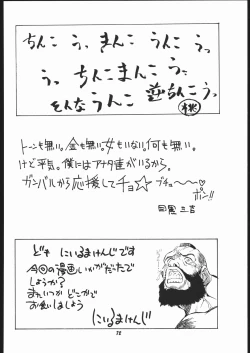 ちんこ う、まんこ うんこ うっ
う。ちんこまんこ う。
そんなうんこ 並ちんこう。
桃
トーンも無い。金も無い。女もいない。何も無い。
けど平気。僕にはアナタ達がいるから。
ガンバルから応援してチョ☆ブチョ〜〜♡
ポン!!
目黒三吉
ども にいるまけんじです
今回の漫画いかがだったで
しょうか?
またいつかどこかで
お会いしましょう
にいるまけんじ